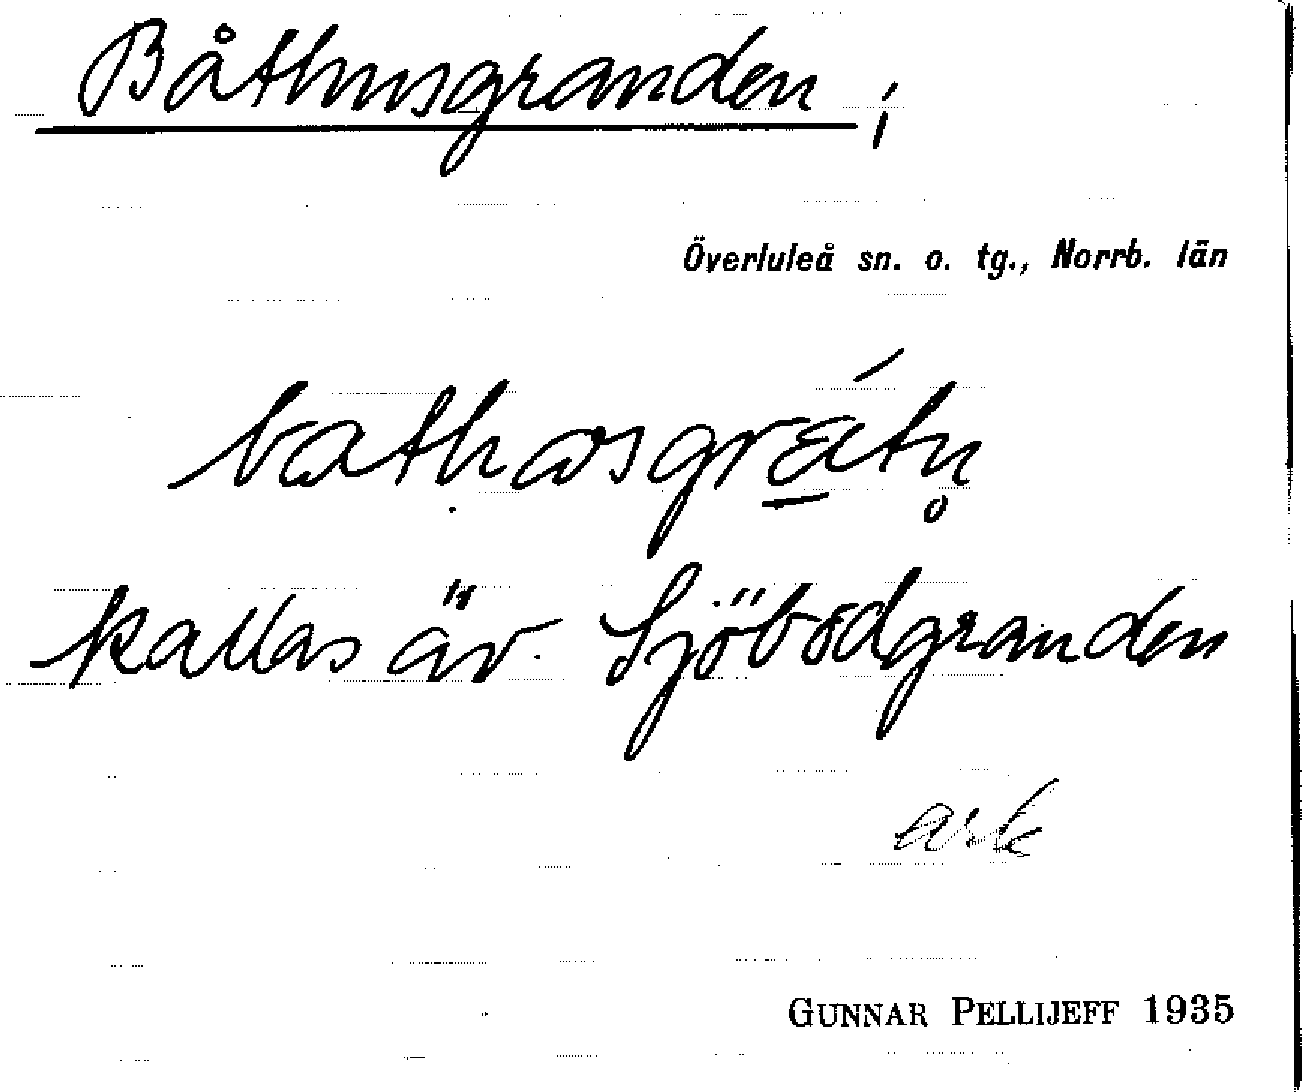 Båthusgranden,
Överluleå sn. o. tg., Norrb. län
kallas äv. Sjöbodgranden
ark
GUNNAR PELLIJEFF 1935